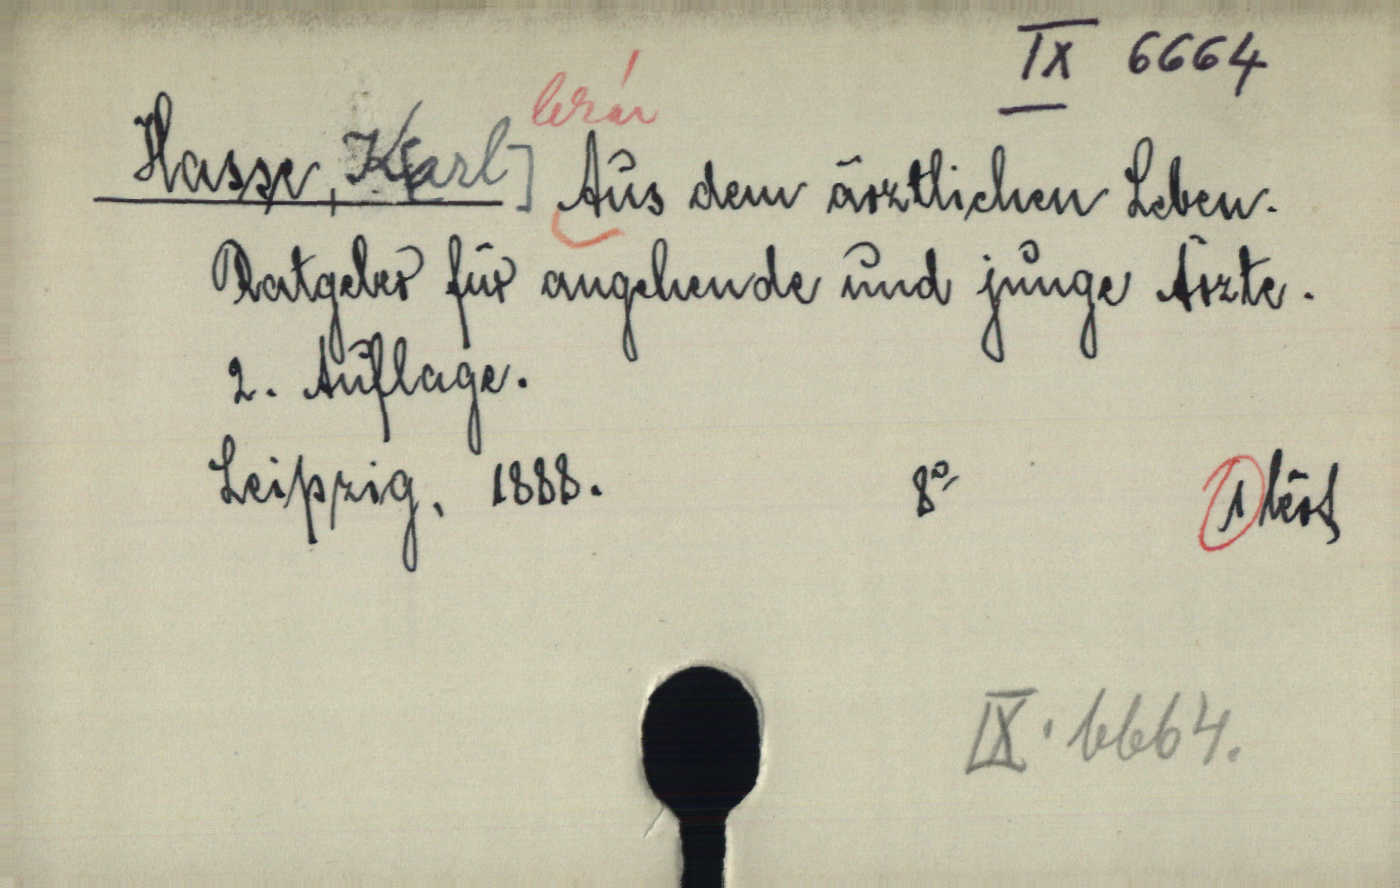 IX 6664
lezár
Hasse, Karl] Aus dem ärztlichen Leben.
Ratgeber für angehende und junge Ärzte.
2. Auflage.
Leipzig, 1888. 8° 1
IX. 6664.